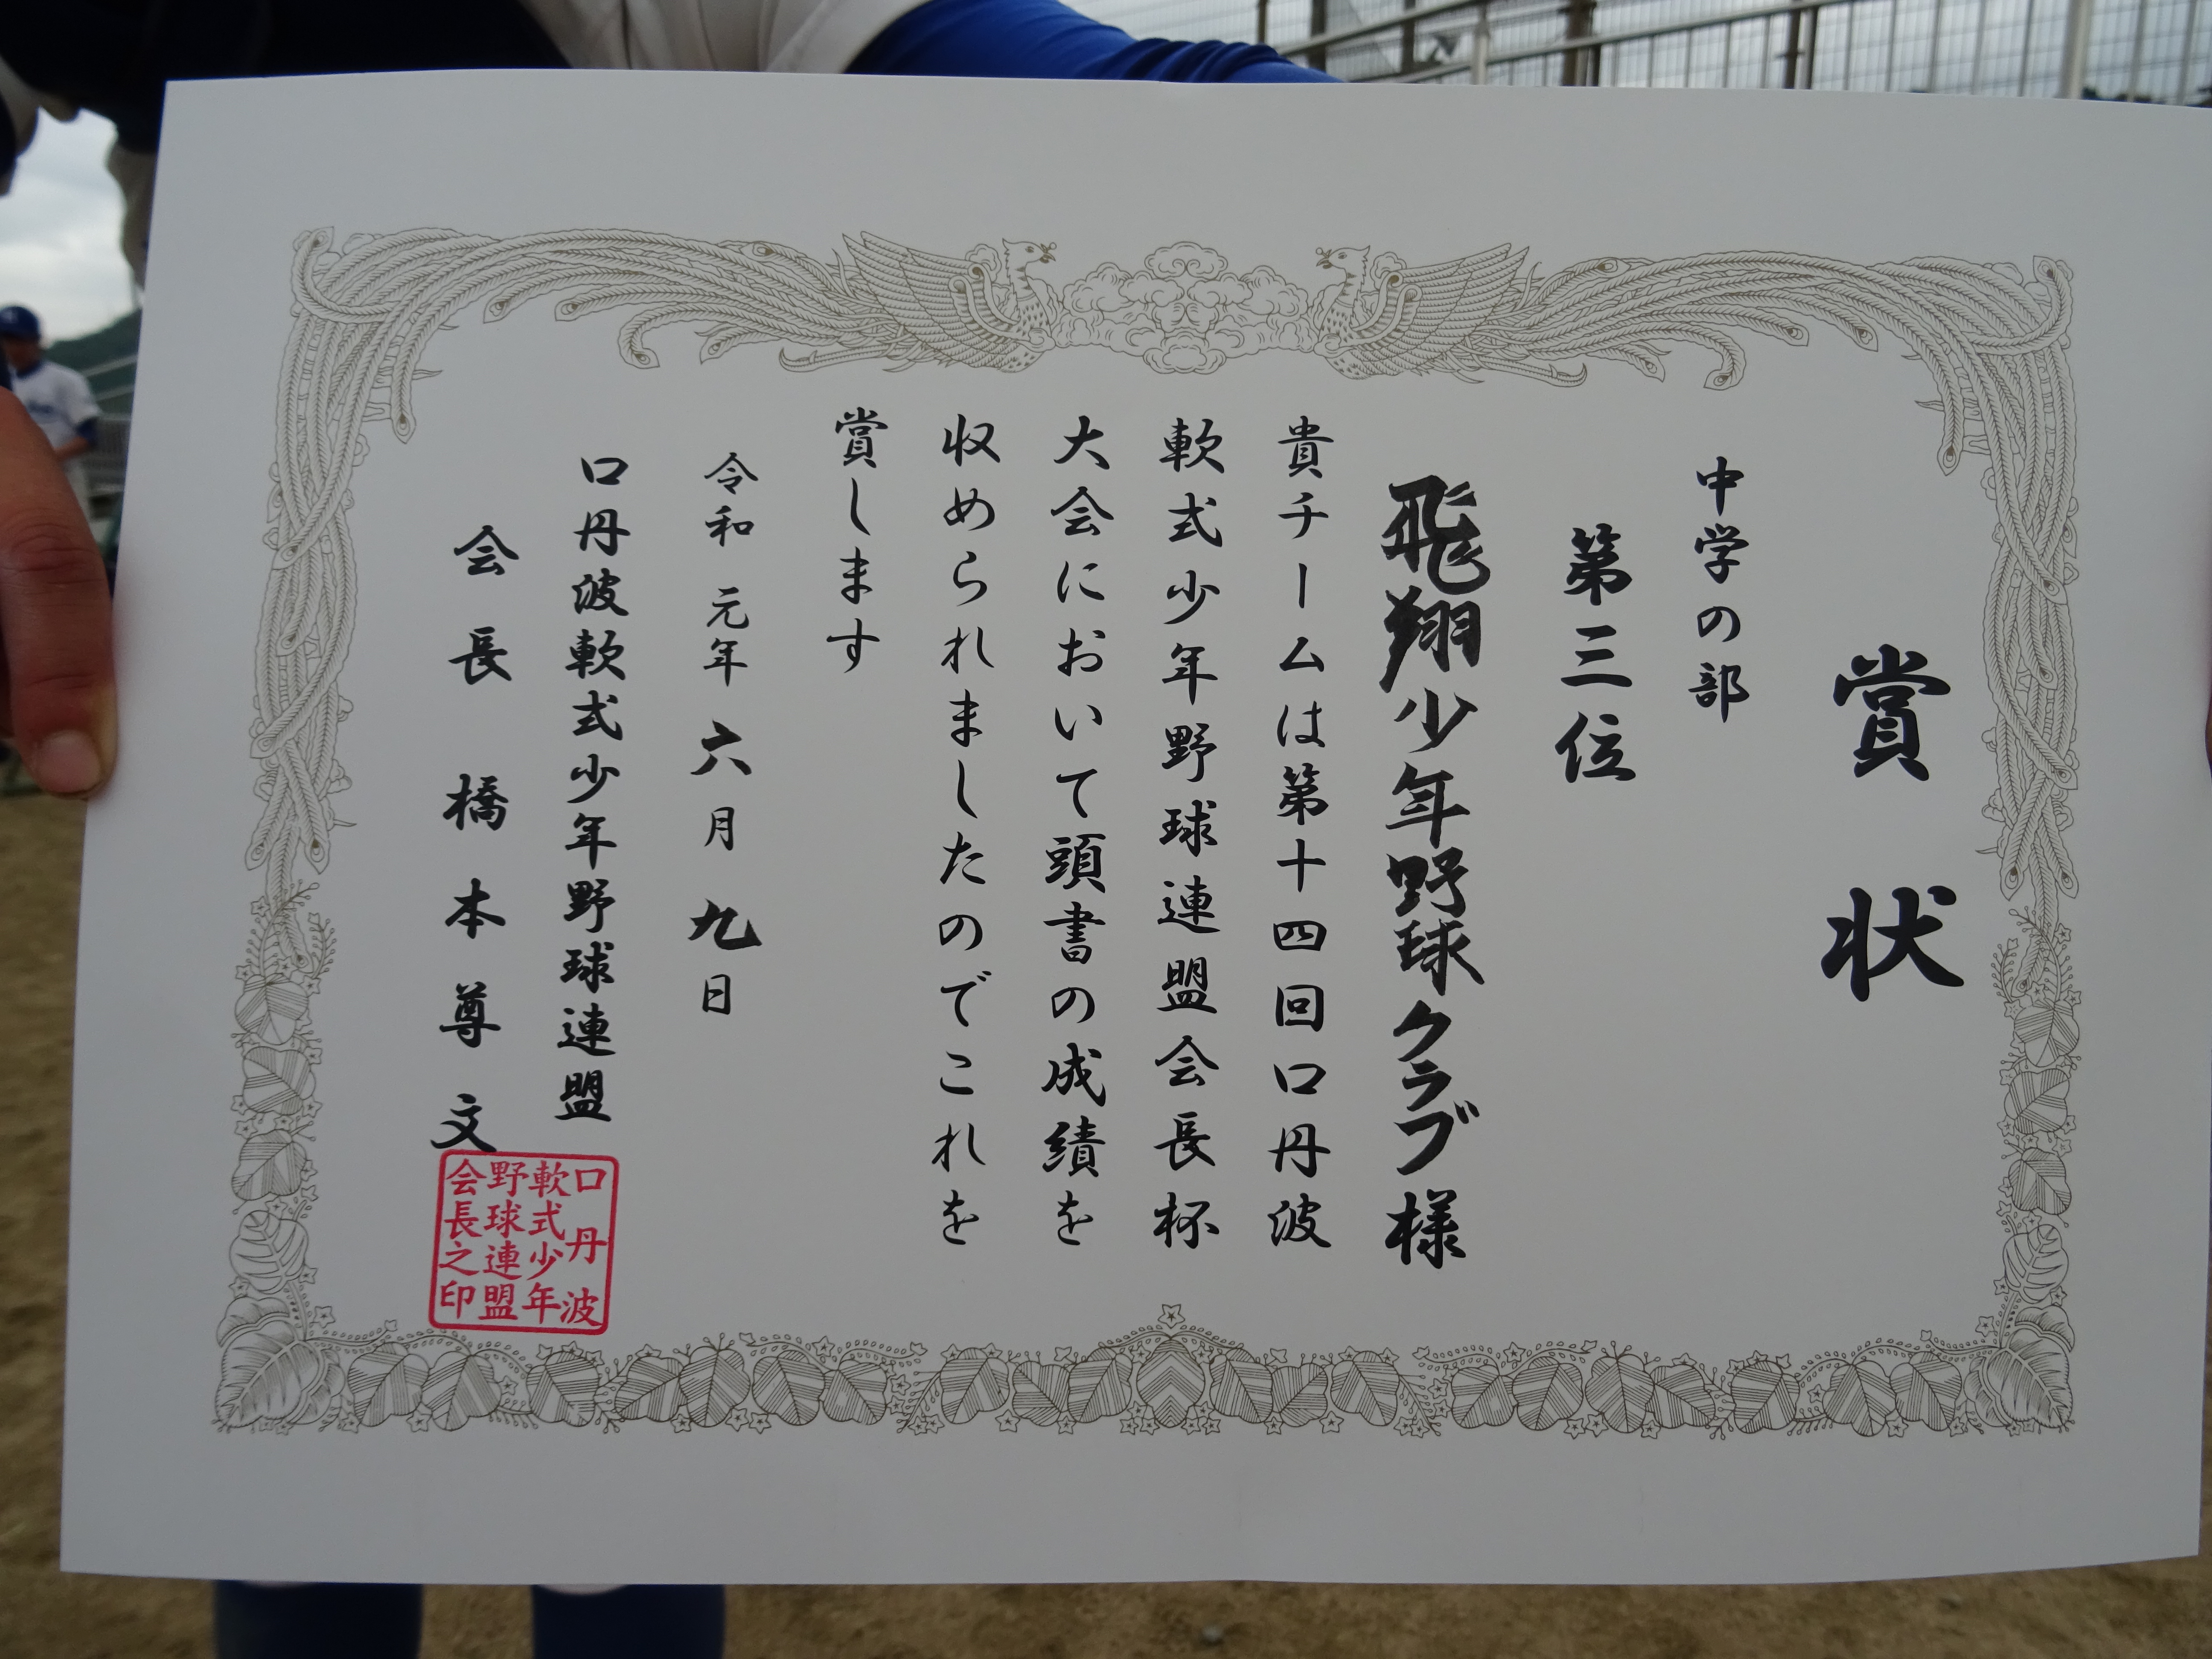 賞状
中学の部
第三位
飛翔少年野球クラブ様
貴チームは第十四回口丹波
軟式少年野球連盟会長杯
大会において頭書の成績を
収められましたのでこれを
賞します
令和 元年 六月 九日
口丹波軟式少年野球連盟
会長 橋本尊文
口丹波
軟式少年
野球連盟
会長之印